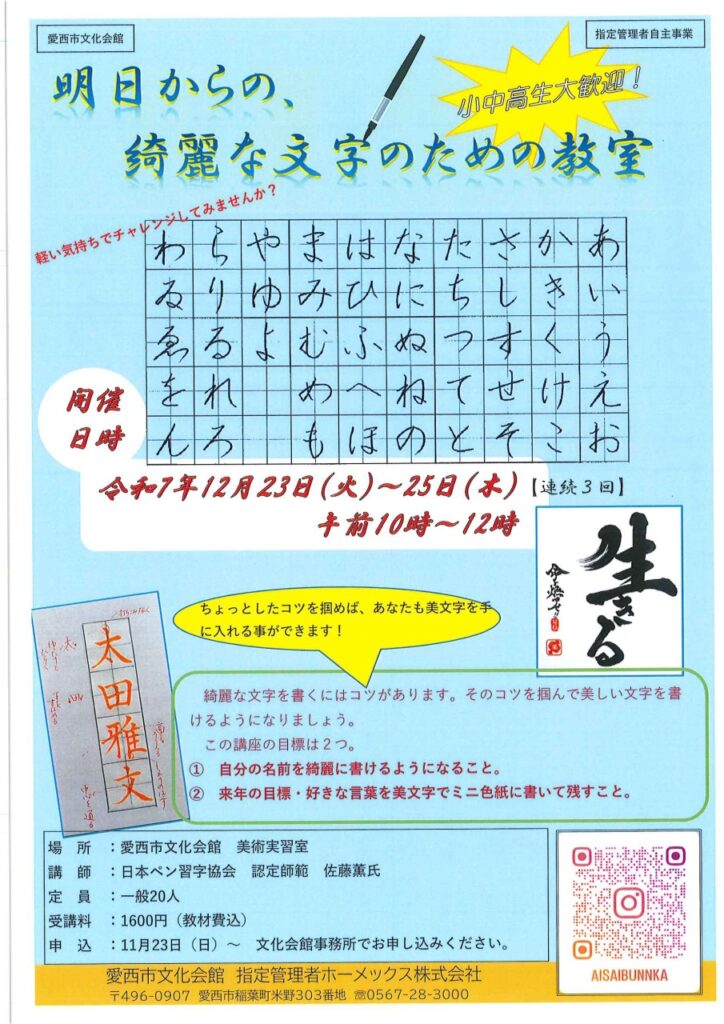 愛西市文化会館
指定管理者自主事業
明日からの、
小中高生大歓迎！
綺麗な文字のための教室
軽い気持ちでチャレンジしてみませんか？
わらやまはなたさかあ
ゐりゆみひにちしきい
ゑるよむふぬつすくう
をれ めへねてせけえ
んろ もほのとそこお
開催
日時
令和7年12月23日(火)～25日(木)【連続３回】
午前10時～12時
生きる
ちょっとしたコツを掴めば、あなたも美文字を手
に入れる事ができます！
太田雅文
綺麗な文字を書くにはコツがあります。そのコツを掴んで美しい文字を書
けるようになりましょう。
この講座の目標は２つ。
①　自分の名前を綺麗に書けるようになること。
②　来年の目標・好きな言葉を美文字でミニ色紙に書いて残すこと。
場　所　：愛西市文化会館　美術実習室
講　師　：日本ペン習字協会　認定師範　佐藤薫氏
定　員　：一般20人
受講料　：1600円（教材費込）
申　込　：11月23日（日）～　文化会館事務所でお申し込みください。
AISAIBUNNKA
愛西市文化会館 指定管理者ホーメックス株式会社
〒496-0907 愛西市稲葉町米野303番地 ☏0567-28-3000